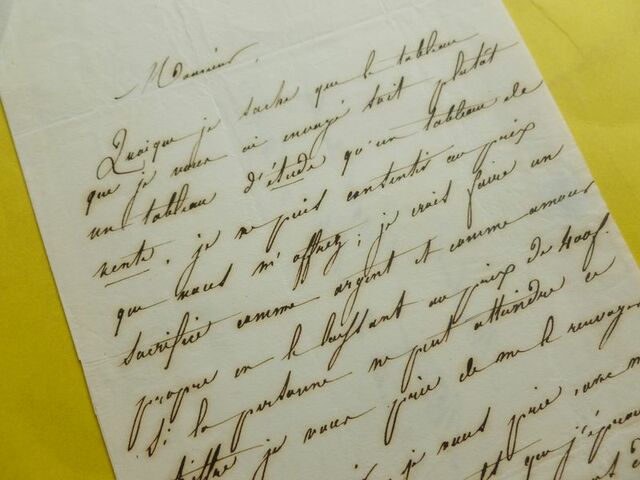 Monsieur,
Quoique je sache que le tableau
que je vous ai envoyé soit plutôt
un tableau d'étude qu'un tableau de
vente, je ne puis consentir au prix
que vous m'offrez; je crois faire un
sacrifice comme argent et comme amour
propre en le laissant au prix de 400f.
Si la personne ne peut atteindre ce
chiffre je vous prie de me le renvoyer
je vous prie, avec
que j'éprou